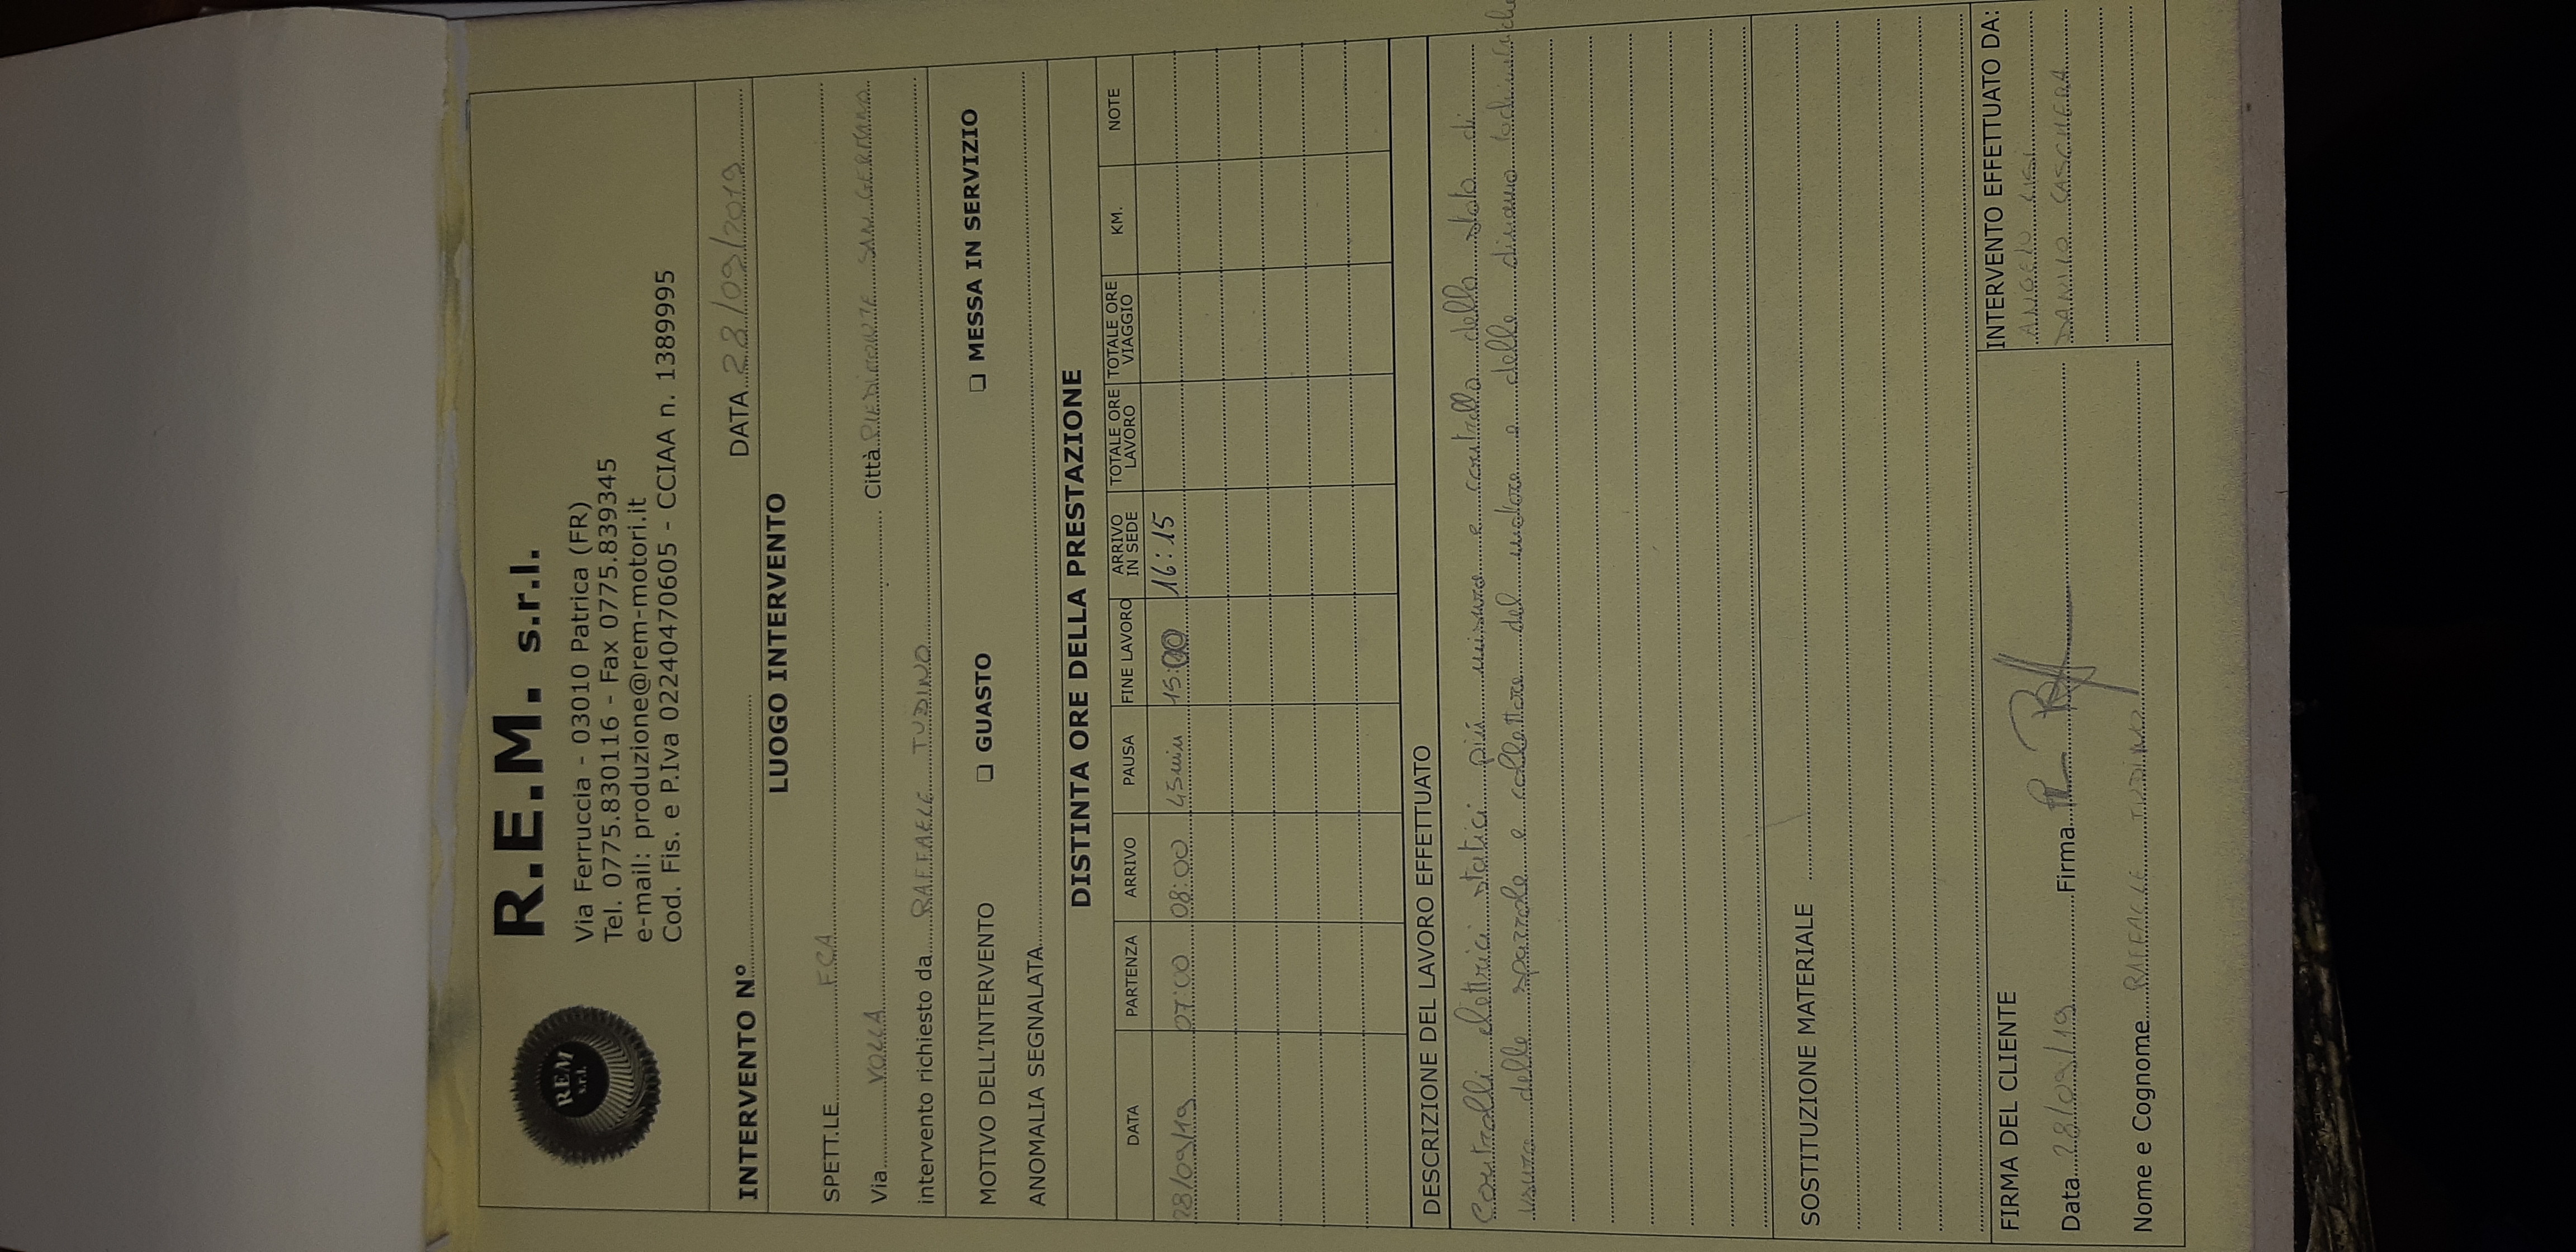 REM
s.r.l.
R.E.M. s.r.l.
Via Ferruccia - 03010 Patrica (FR)
Tel. 0775.830116 - Fax 0775.839345
e-mail: produzione@rem-motori.it
Cod. Fis. e P.Iva 02240470605 - CCIAA n. 1389995
INTERVENTO N° DATA 28/09/2019
LUOGO INTERVENTO
SPETT.LE FCA
Via VOLLA Città PIEDIMONTE SAN GERMANO
intervento richiesto da RAFFAELE TUDINO
MOTIVO DELL'INTERVENTO ❏ GUASTO ❏ MESSA IN SERVIZIO
ANOMALIA SEGNALATA
DISTINTA ORE DELLA PRESTAZIONE
DATA PARTENZA ARRIVO PAUSA FINE LAVORO ARRIVO IN SEDE TOTALE ORE LAVORO TOTALE ORE VIAGGIO KM. NOTE
28/09/19 07:00 08:00 45min 15:00 16:15
DESCRIZIONE DEL LAVORO EFFETTUATO
Controlli elettrici statici più misura e controllo dello stato di
usura delle spazzole e collettore del motore e della dinamo tachimetrica
SOSTITUZIONE MATERIALE
FIRMA DEL CLIENTE INTERVENTO EFFETTUATO DA:
ANGELO LISI
Data 28/09/19 Firma DANILO CASCHERA
Nome e Cognome RAFFAELE TUDINO